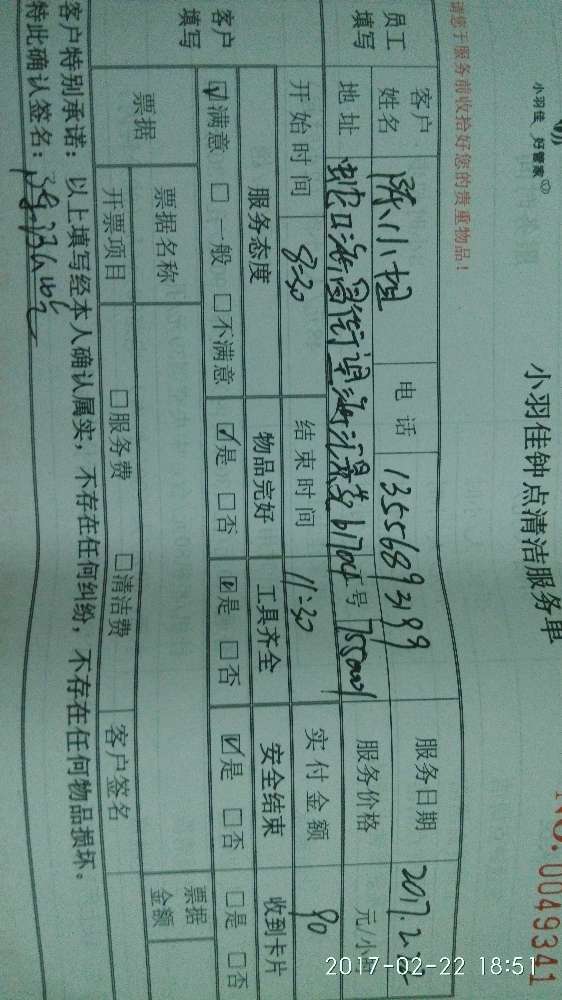 小羽佳 好管家
小羽佳钟点清洁服务单
NO. 0049341
请您于服务前收拾好您的贵重物品！
员工填写
客户姓名 陈小姐 电话 13556893199 服务日期 2017.2.22
地址 服务价格 元/小时
开始时间 8:30 结束时间 11:30 实付金额 90
客户填写
服务态度 物品完好 工具齐全 安全结束 收到卡片
☑满意 □一般 □不满意 ☑是 □否 ☑是 □否 ☑是 □否 □是 □否
票据 票据名称 票据金额
开票项目 □服务费 □清洁费 客户签名
客户特别承诺：以上填写经本人确认属实，不存在任何纠纷，不存在任何物品损坏。
特此确认签名：
2017-02-22 18:51